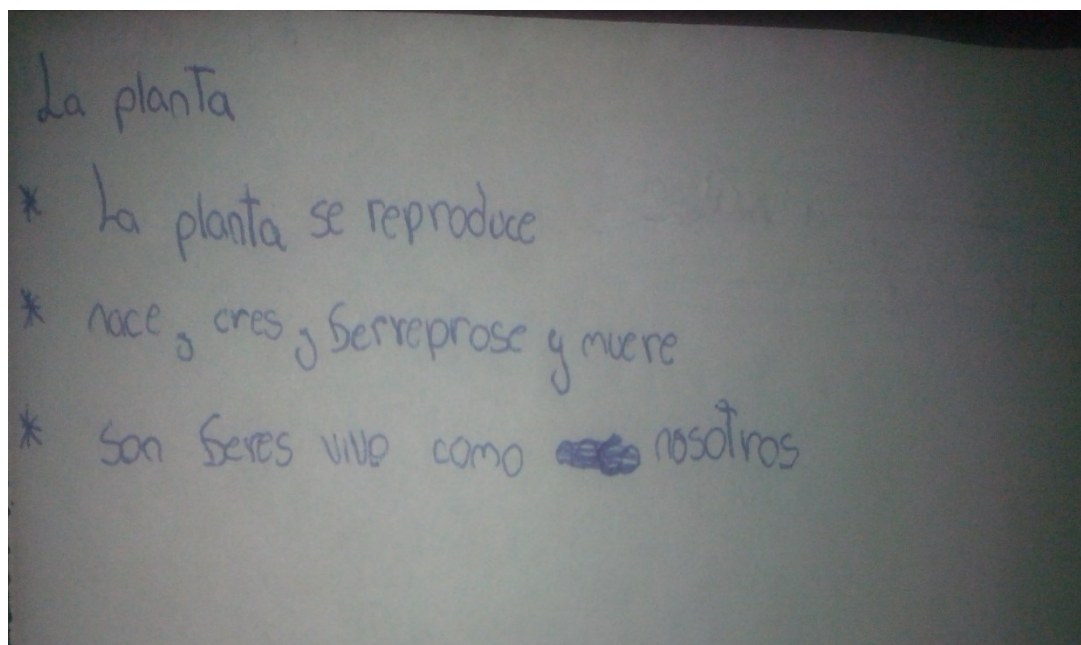 La planta
* La planta se reproduce
* nace, cres, Serreprose y muere
* Son Seres vivo como nosotros